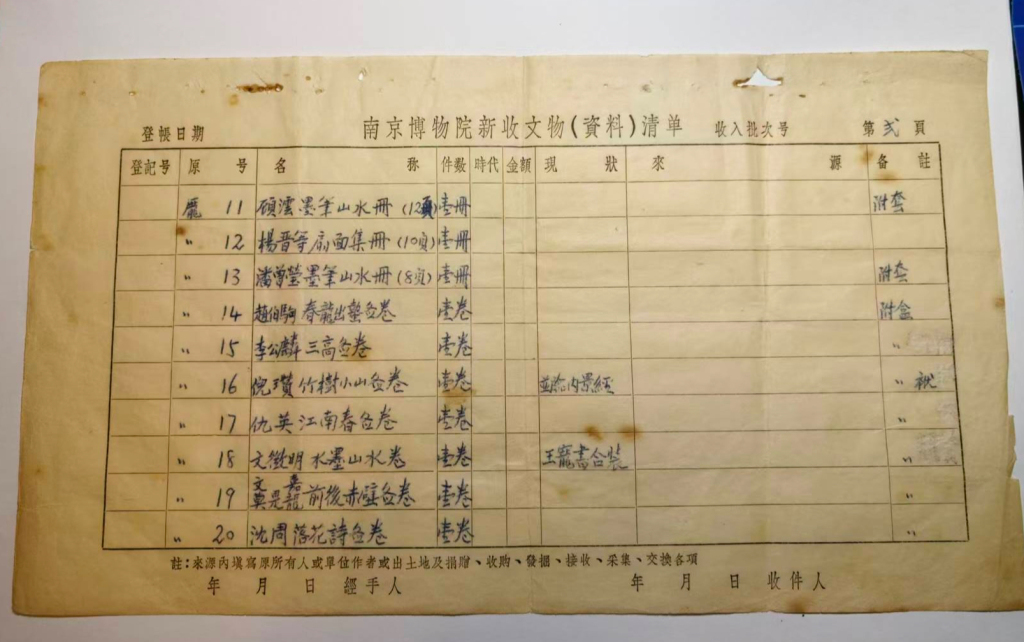 登帳日期 南京博物院新收文物(資料)清单 收入批次号 第 弍 頁
登記号 原号 名称 件数 時代 金額 現狀 來源 备註
龐 11 顧澐墨笔山水冊 (12頁) 壹冊 附套
〃 12 楊晋等扇面集冊 (10頁) 壹冊
〃 13 潘曾瑩墨筆山水冊 (8頁) 壹冊 附套
〃 14 趙伯駒 春龍出蟄图卷 壹卷 附盒
〃 15 李公麟 三高图卷 壹卷 〃
〃 16 倪瓚 竹樹小山图卷 壹卷 内景經 〃
〃 17 仇英 江南春图卷 壹卷 〃
〃 18 文徵明 水墨山水卷 壹卷 王寵書合裝 〃
〃 19 文嘉 莫是龍 前後赤壁图卷 壹卷 〃
〃 20 沈周 落花詩图卷 壹卷 〃
註:來源內填寫原所有人或單位作者或出土地及捐贈、收購、發掘、接收、采集、交換各項
年 月 日 經手人 年 月 日 收件人